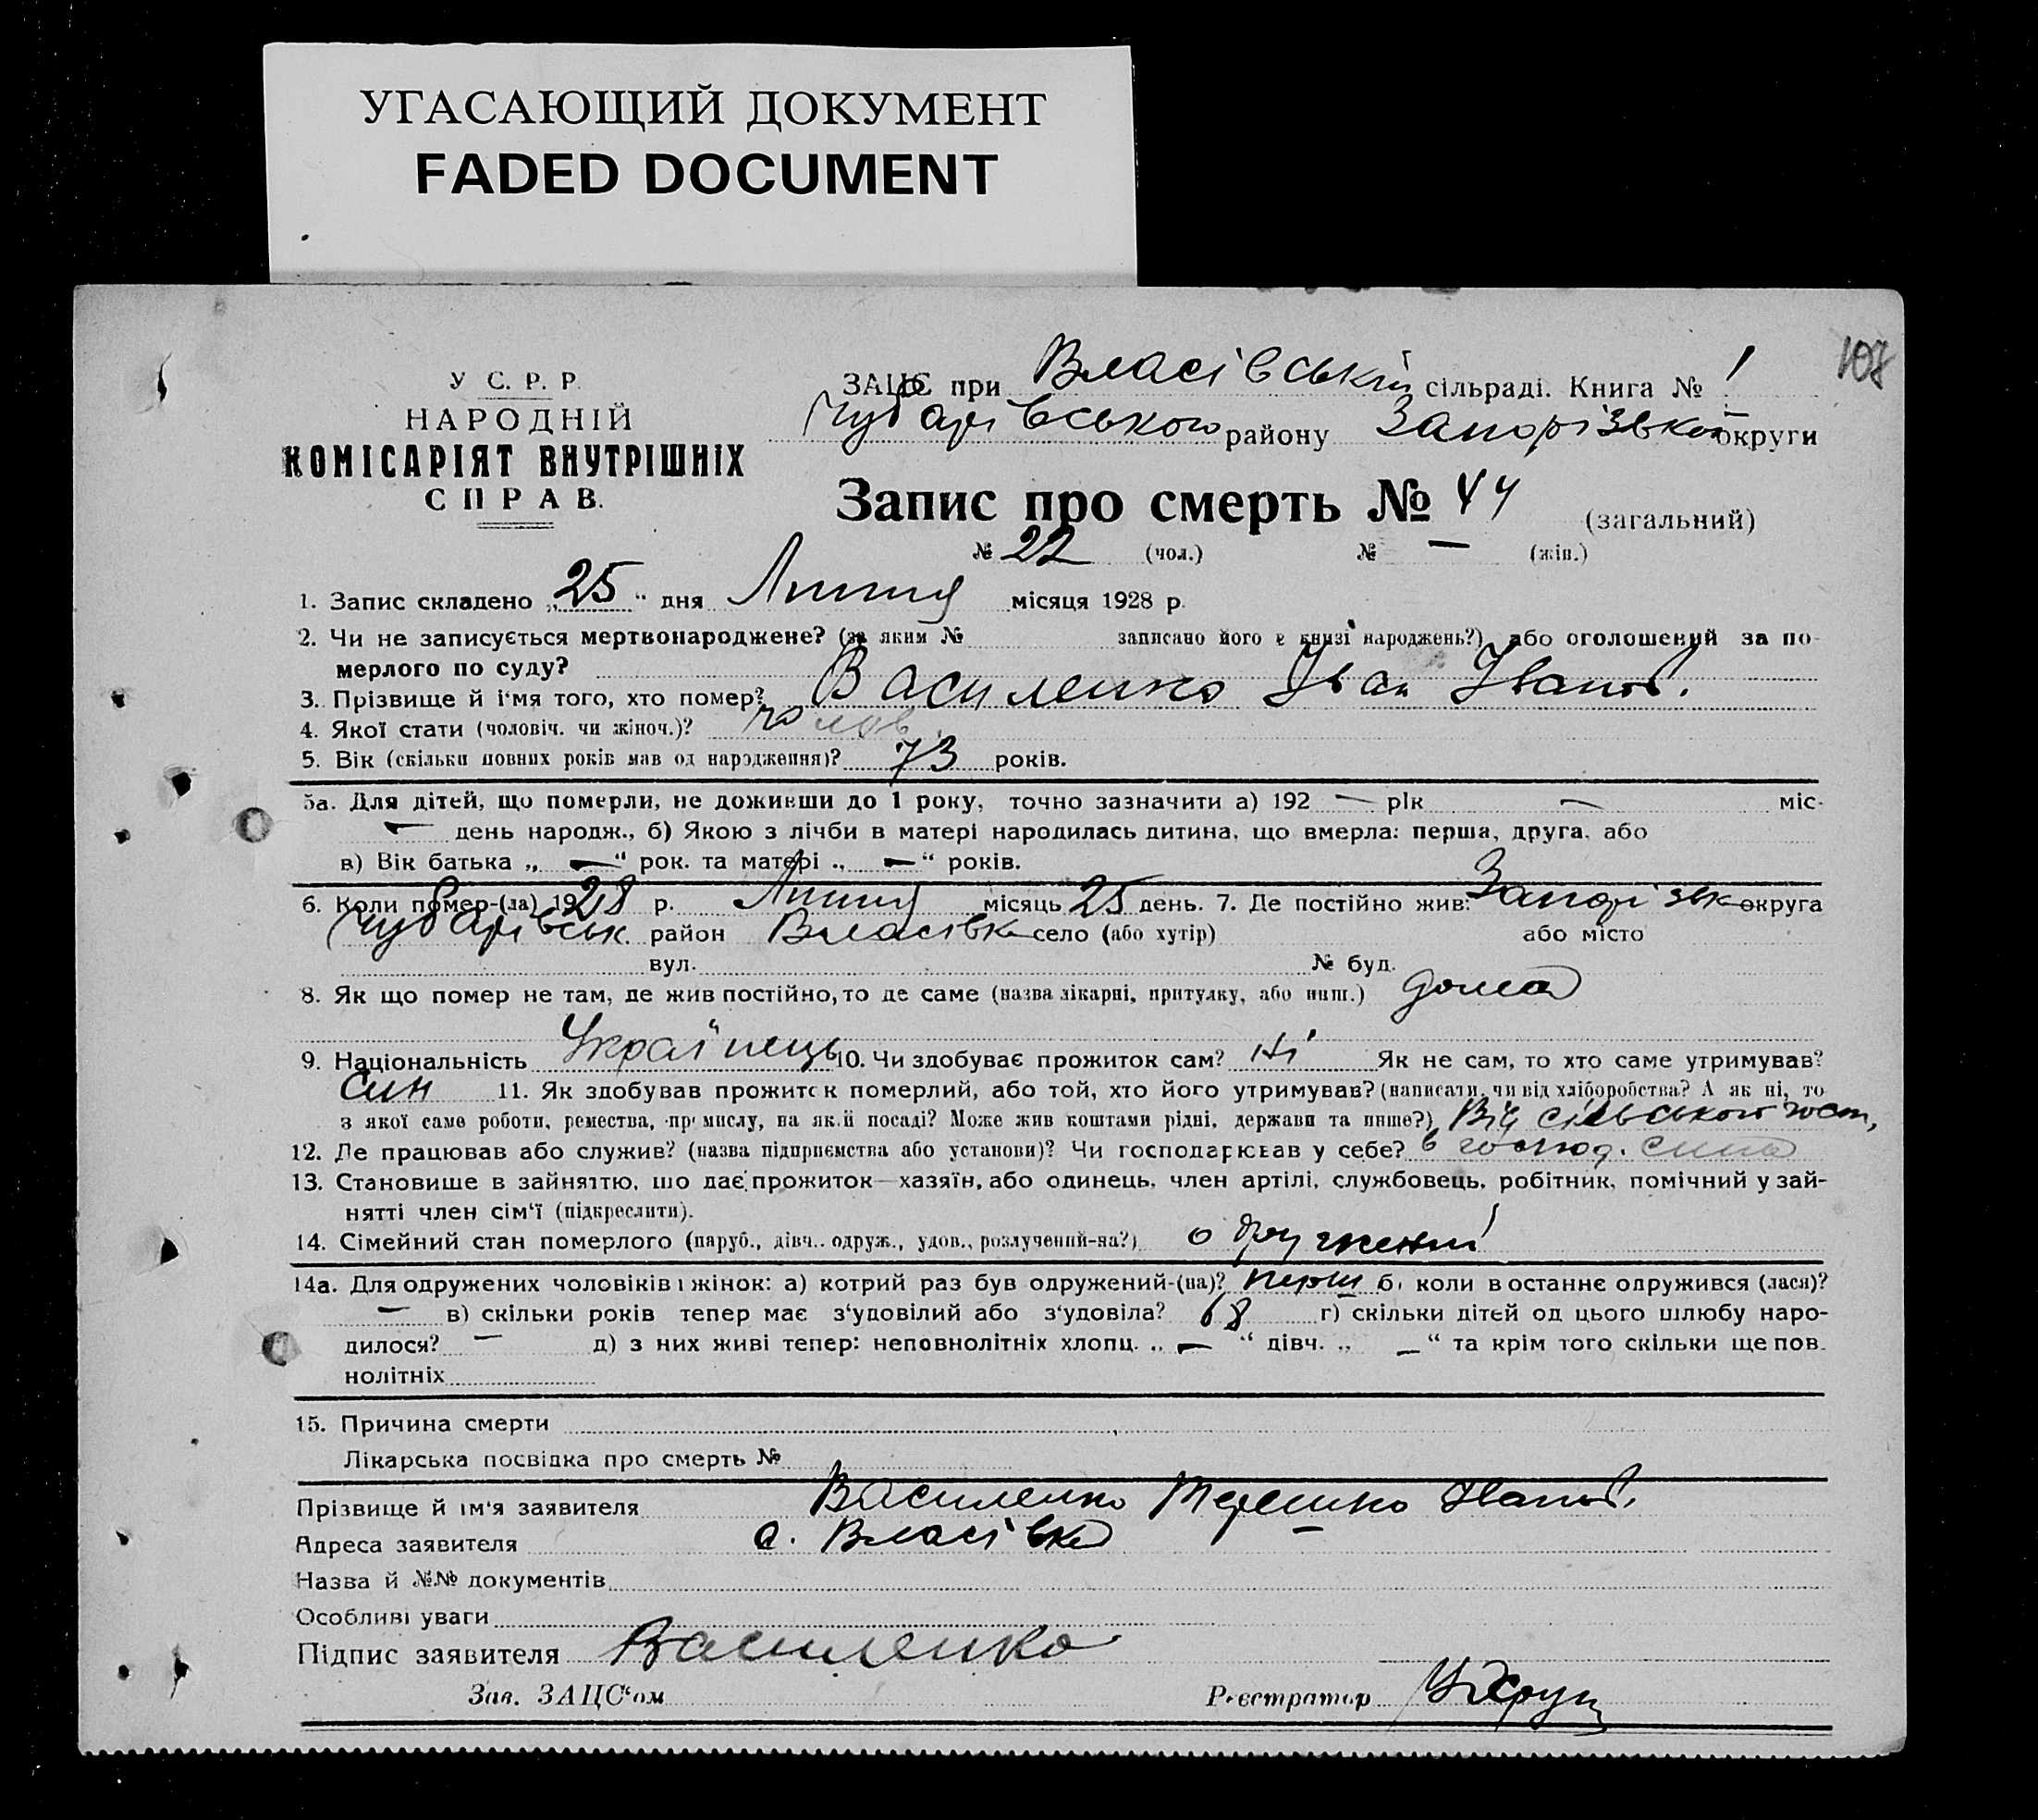 УГАСАЮЩИЙ ДОКУМЕНТ
FADED DOCUMENT
108
У С. Р. Р.
НАРОДНІЙ
КОМІСАРІЯТ ВНУТРІШНІХ
СПРАВ.
ЗАЦС при Власівській сільраді. Книга № 1
Чубарівського району Запорізької округи
Запис про смерть № 44 (загальний)
№ 22 (чол.) № — (жін.)
1. Запис складено „25“ дня Липня місяця 1928 р.
2. Чи не записується мертвонароджене? (за яким № записано його в книзі народжень?) або оголошений за по-
мерлого по суду?
3. Прізвище й ім'я того, хто помер? Василенко Іван Іванов.
4. Якої стати (чоловіч. чи жіноч.)? чолов
5. Вік (скільки повних років мав од народження)? 73 років.
5а. Для дітей, що померли, не доживши до 1 року, точно зазначити а) 192 — рік — міс-
— день народж., б) Якою з лічби в матері народилась дитина, що вмерла: перша, друга, або
в) Вік батька „—“ рок. та матері „—“ років.
6. Коли помер-(ла) 1928 р. Липня місяць 25 день. 7. Де постійно жив: Запорізьк округа
Чубарівськ. район Власівка село (або хутір) або місто
вул. № буд.
8. Як що помер не там, де жив постійно, то де саме (назва лікарні, притулку, або инш.) дома
9. Національність Українець 10. Чи здобуває прожиток сам? Ні Як не сам, то хто саме утримував?
син 11. Як здобував прожиток померлий, або той, хто його утримував? (написати, чи від хліборобства? А як ні, то
з якої саме роботи, ремества, промислу, на якій посаді? Може жив коштами рідні, держави та инше?) Від сільського госп,
12. Де працював або служив? (назва підприємства або установи)? Чи господарював у себе? в господ. сина
13. Становище в зайняттю, що дає прожиток—хазяїн, або одинець, член артілі, службовець, робітник, помічний у зай-
нятті член сім'ї (підкреслити).
14. Сімейний стан померлого (паруб., дівч., одруж., удов., розлучений-на?) одружений
14а. Для одружених чоловіків і жінок: а) котрий раз був одружений-(на)? перш б) коли в останнє одружився (лася)?
— в) скільки років тепер має з'удовілий або з'удовіла? 68 г) скільки дітей од цього шлюбу наро-
дилося? — д) з них живі тепер: неповнолітніх хлопц. „—“ дівч. „—“ та крім того скільки ще пов-
нолітніх
15. Причина смерти
Лікарська посвідка про смерть №
Прізвище й ім'я заявителя Василенко Терешко Іванов.
Адреса заявителя с. Власівка
Назва й №№ документів
Особливі уваги
Підпис заявителя Василенко
Зав. ЗАЦС'ом Реєстратор